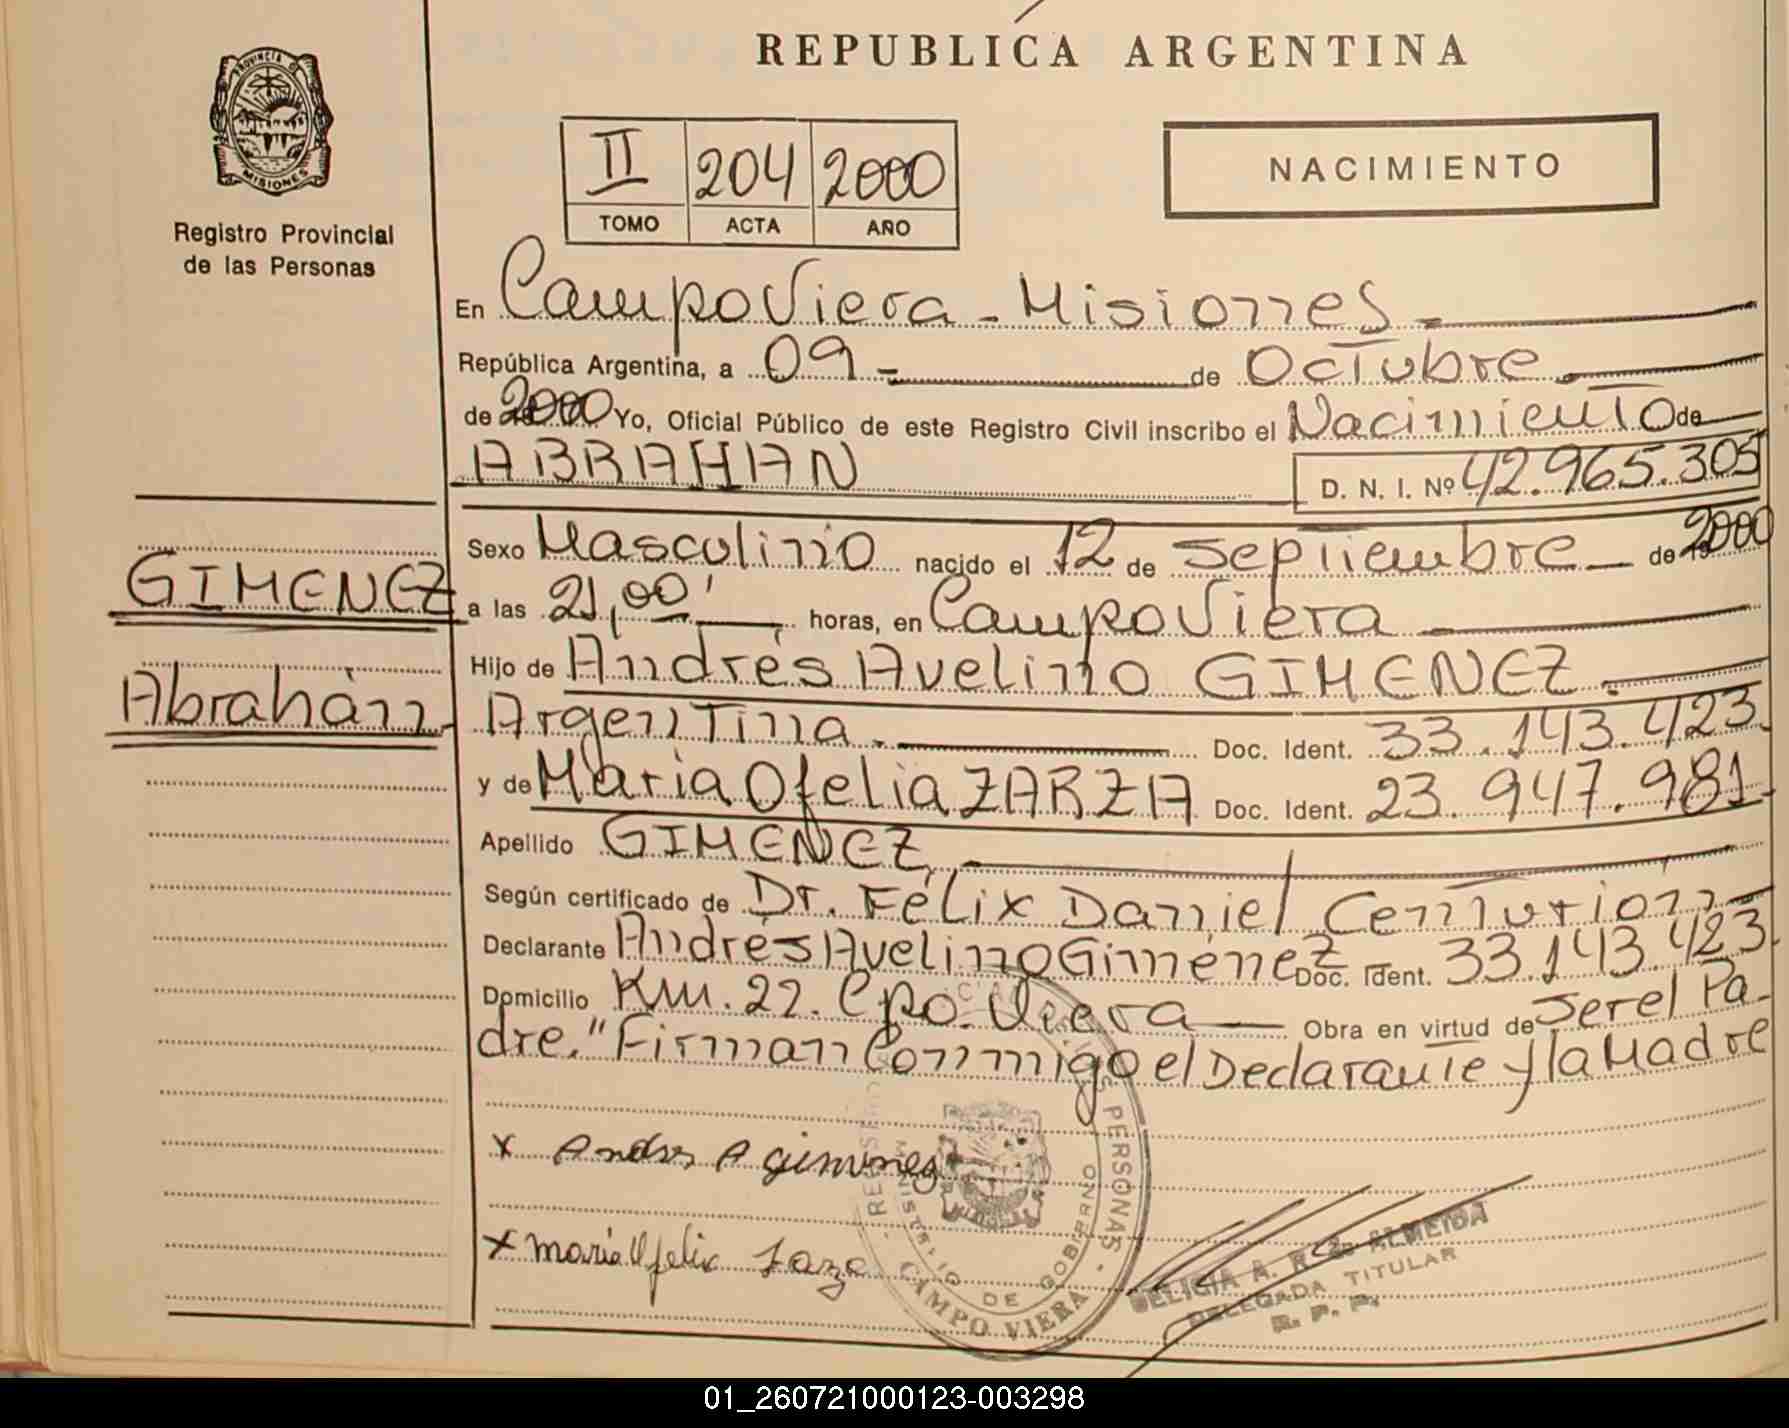 REPUBLICA ARGENTINA
PROVINCIA DE
MISIONES
Registro Provincial
de las Personas
II 204 2000
TOMO ACTA AÑO
NACIMIENTO
En Campo Viera - Misiones
República Argentina, a 09 de Octubre
de 2000 Yo, Oficial Público de este Registro Civil inscribo el Nacimiento de
ABRAHAN D. N. I. Nº 42.965.305
GIMENEZ
Abrahán
Sexo Masculino nacido el 12 de Septiembre de 2000
a las 21,00' horas, en Campo Viera
Hijo de Andrés Avelino GIMENEZ.
Argentina. Doc. Ident. 33.143.423
y de Maria Ofelia ZARZA Doc. Ident. 23.947.981
Apellido GIMENEZ
Según certificado de Dr. Félix Daniel Centurión
Declarante Andrés Avelino Giménez Doc. Ident. 33.143.423
Domicilio Km. 22. Cpo. Viera Obra en virtud de Ser el Pa-
dre." Firman Conmigo el Declarante y la Madre
x Andres A gimenez
x maria Ofelia Zarza
PERSONAS
MINIST. DE GOBIERNO
CAMPO VIERA
DELICIA A. R. ALMEIDA
DELEGADA TITULAR
R. P. P.
01_260721000123-003298